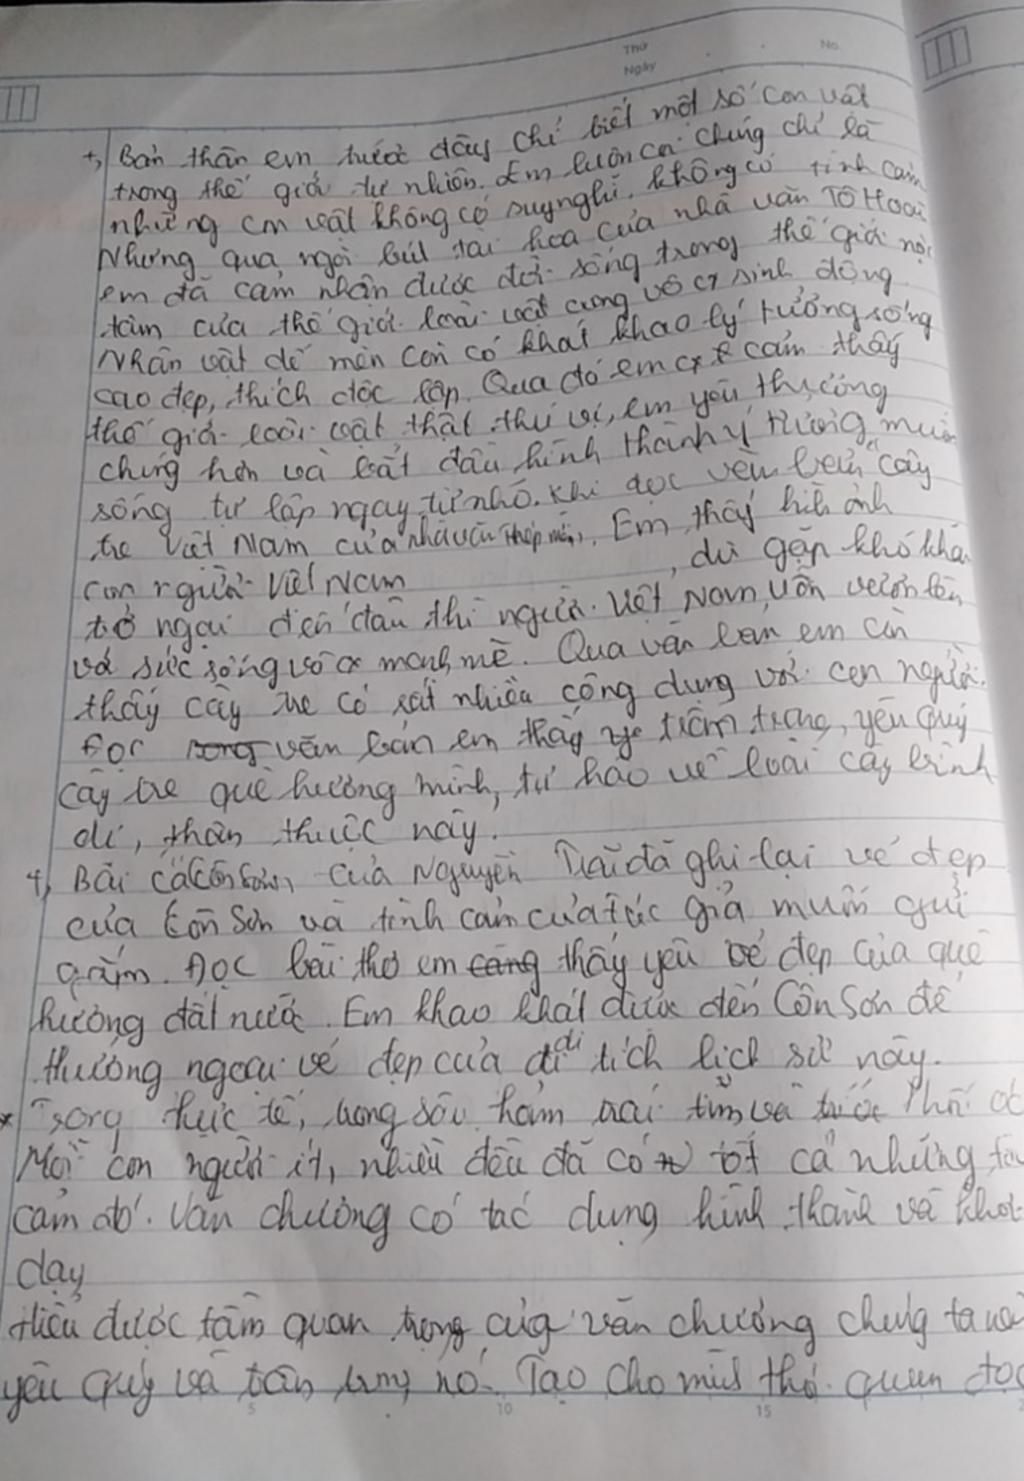 Thứ
No.
Ngày
+, Bản thân em trước đây chỉ biết một số con vật
trong thế giới tự nhiên. Em luôn coi chúng chỉ là
những con vật không có suy nghĩ, không có tình cảm
Nhưng qua ngòi bút tài hoa của nhà văn Tô Hoài
em đã cảm nhận được đời sống trong thế giới nội
tâm của thế giới loài vật cũng vô cг sinh động.
Nhân vật dế mèn còn có khát khao lý tưởng sống
cao đẹp, thích độc lập. Qua đó em cảm thấy
thế giới loài vật thật thú vị, em yêu thương
chúng hơn và bắt đầu hình thành ý tưởng muốn
sống tự lập ngay từ nhỏ. Khi đọc văn bản "cây
tre Việt Nam của nhà văn Thép mới, Em thấy hình ảnh
con người Việt Nam , dù gặp khó khă
trở ngại đến đâu thì người Việt Nam vẫn vươn lên
với sức sống vô cг mạnh mẽ. Qua văn bản em còn
thấy cây tre có rất nhiều công dụng với con người.
Đọc văn bản em thấy trân trọng, yêu quý
cây tre quê hương mình, tự hào về loài cây bình
dị, thân thuộc này.
+, Bài ca Côn Sơn của Nguyễn Trãi đã ghi lại vẻ đẹp
của Côn Sơn và tình cảm của tác giả muốn gửi
gắm. Đọc bài thơ em càng thấy yêu vẻ đẹp của quê
hương đất nước. Em khao khát được đến Côn Sơn để
thưởng ngoại vẻ đẹp của di tích lịch sử này.
* Trong thực tế, trong sâu thẳm trái tim và
Mỗi con người ít, nhiều đều đã có tất cả những
cảm đó. Văn chương có tác dụng hình thành và khơi
dạy
Hiểu được tầm quan trọng của văn chương chúng ta
yêu quý và trân trọng nó. Tạo cho mình thói quen đọc
5 10 15